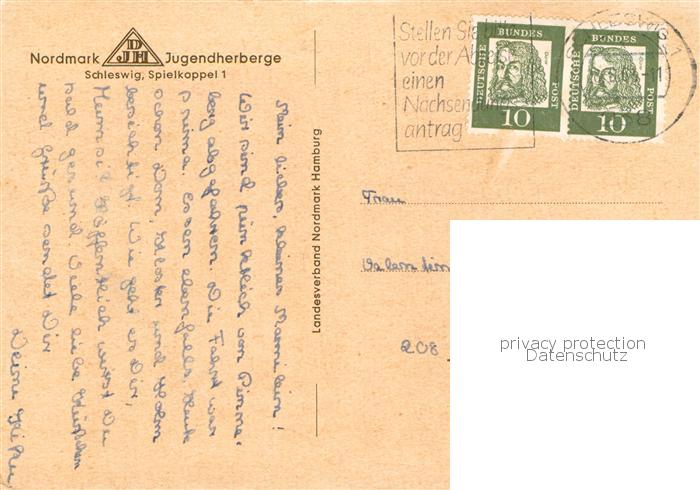 Nordmark DJH Jugendherberge
Schleswig, Spielkoppel 1
Stellen Sie
vor der
einen
Nachsen
antrag
DEUTSCHE BUNDES POST
10
DEUTSCHE BUNDES POST
10
Mein liebes, kleines Mamilein!
Wir sind pünktlich von Pinne-
berg abgefahren. Die Fahrt war
prima. Essen ebenfalls. Heute
schon Dom, Kloster und Holm
besichtigt. Wie geht es Dir,
Mamsi? Hoffentlich wirst Du
bald gesund. Viele liebe Küßchen
und Grüße sendet Dir
Deine
Landesverband Nordmark Hamburg
Frau
Valentin
208
privacy protection
Datenschutz